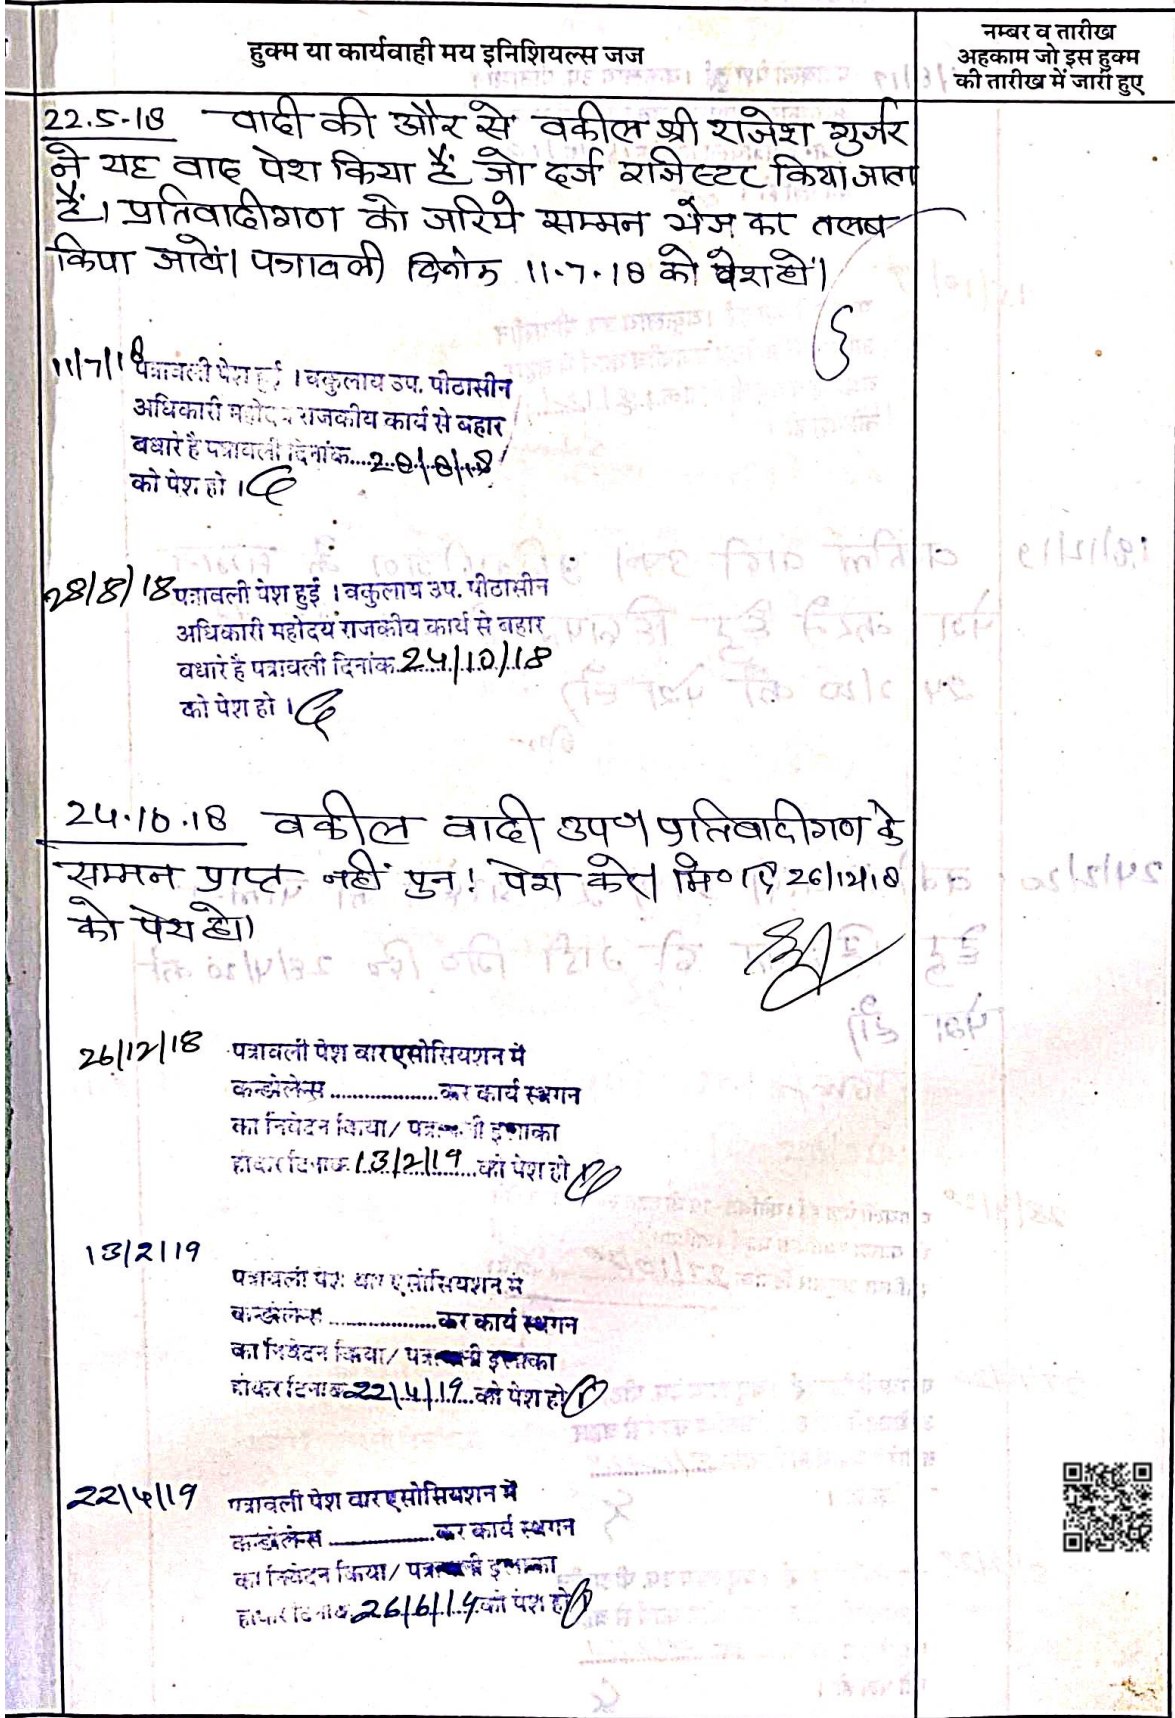 हुक्म या कार्यवाही मय इनिशियल्स जज
नम्बर व तारीख
अहकाम जो इस हुक्म
की तारीख में जारी हुए
22.5-18 वादी की और से वकील श्री राजेश गुर्जर
ने यह वाद पेश किया हैं जो दर्ज रजिस्टट किया जाता
हैं। प्रतिवादीगण को जरिये सम्मन भेज का तलब
किया जावें। पत्रावली दिनांक 11.7.18 को पेश हो।
11/7/18 पत्रावली पेश हुई । वकुलाय उप. पीठासीन
अधिकारी महोदय राजकीय कार्य से बहार
बधारे है पत्रावली दिनांक....28/8/18
को पेश हो ।
28/8/18 पत्रावली पेश हुई । वकुलाय उप. पीठासीन
अधिकारी महोदय राजकीय कार्य से बहार
बधारे है पत्रावली दिनांक 24/10/18
को पेश हो ।
24.10.18 वकील वादी उप० प्रतिवादीगण के
सम्मन प्राप्त नहीं पुन: पेश करे। 26/12/18
को पेश हो।
26/12/18 पत्रावली पेश बार एसोसियशन में
कन्डोलेन्स ..................कर कार्य स्थगन
का निवेदन किया/ पत्रावली इलाका
होकर दिनांक 13/2/19 को पेश हो
13/2/19
पत्रावली पेश बार एसोसियशन में
कन्डोलेन्स ..................कर कार्य स्थगन
का निवेदन किया/ पत्रावली इलाका
होकर दिनांक 22/4/19 को पेश हो
22/4/19 पत्रावली पेश बार एसोसियशन में
कन्डोलेन्स ..................कर कार्य स्थगन
का निवेदन किया/ पत्रावली इलाका
होकर दिनांक 26/6/19 को पेश हो